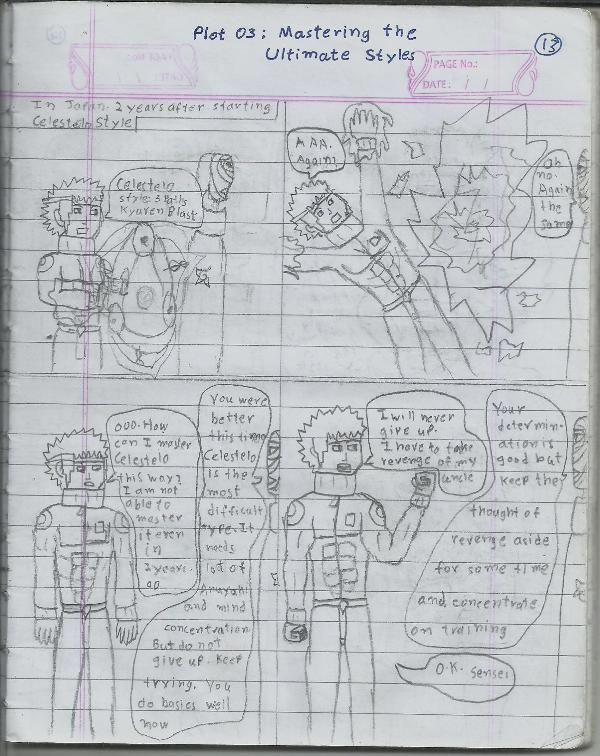 Plot 03: Mastering the
Ultimate Styles
13
PAGE No.:
DATE: / /
In Japan. 2 years after starting
Celestelo Style
Celestelo
style: 3 Balls
Kyuren Blast
AAA.
Again
Oh
no.
Again
the
same
OOO. How
can I master
Celestelo
this way?
I am not
able to
master
it even
in
2 years.
You were
better
this time
Celestelo
is the
most
difficult
type. It
needs
lot of
and mind
concentration
But do not
give up. Keep
trying. You
do basics well
now
I will never
give up.
I have to take
revenge of my
uncle
Your
determin-
ation is
good but
keep the
thought of
revenge aside
for some time
and concentrate
on training
O.K. Sensei